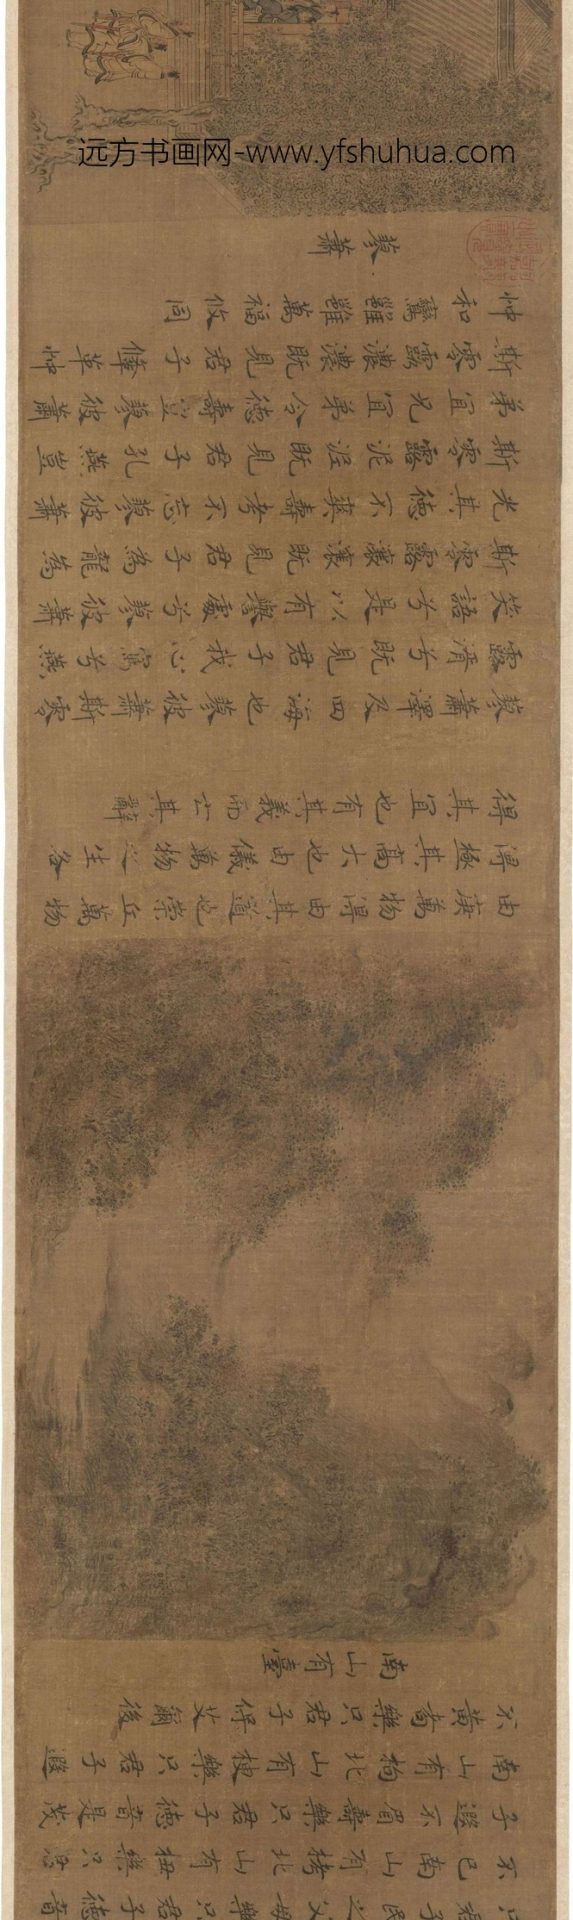 只君子民之父母樂只君子德音
不已南山有栲北山有杻樂只君
子遐不眉壽樂只君子德音是茂
南山有枸北山有楰樂只君子遐
不黃耇樂只君子保艾爾後
南山有臺
由庚萬物得由其道也崇丘萬物
得極其高大也由儀萬物之生各
得其宜也有其義而亡其辭
蓼蕭澤及四海也蓼彼蕭斯零
露湑兮既見君子我心寫兮燕
笑語兮是以有譽處兮蓼彼蕭
斯零露瀼瀼既見君子為龍為
光其德不爽壽考不忘蓼彼蕭
斯零露泥泥既見君子孔燕豈
弟宜兄宜弟令德壽豈蓼彼蕭
斯零露濃濃既見君子鞗革忡
忡和鸞雝雝萬福攸同
蓼蕭
远方书画网-www.yfshuhua.com